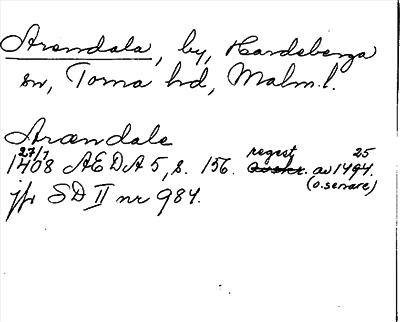 Arendala, by, Hardeberga
sn, Torna hd, Malm.l.
Arændale
27/7 25
1408 ÆDA 5, s. 156. regest av 1494.
(o. senare)
jfr SD II nr 984.